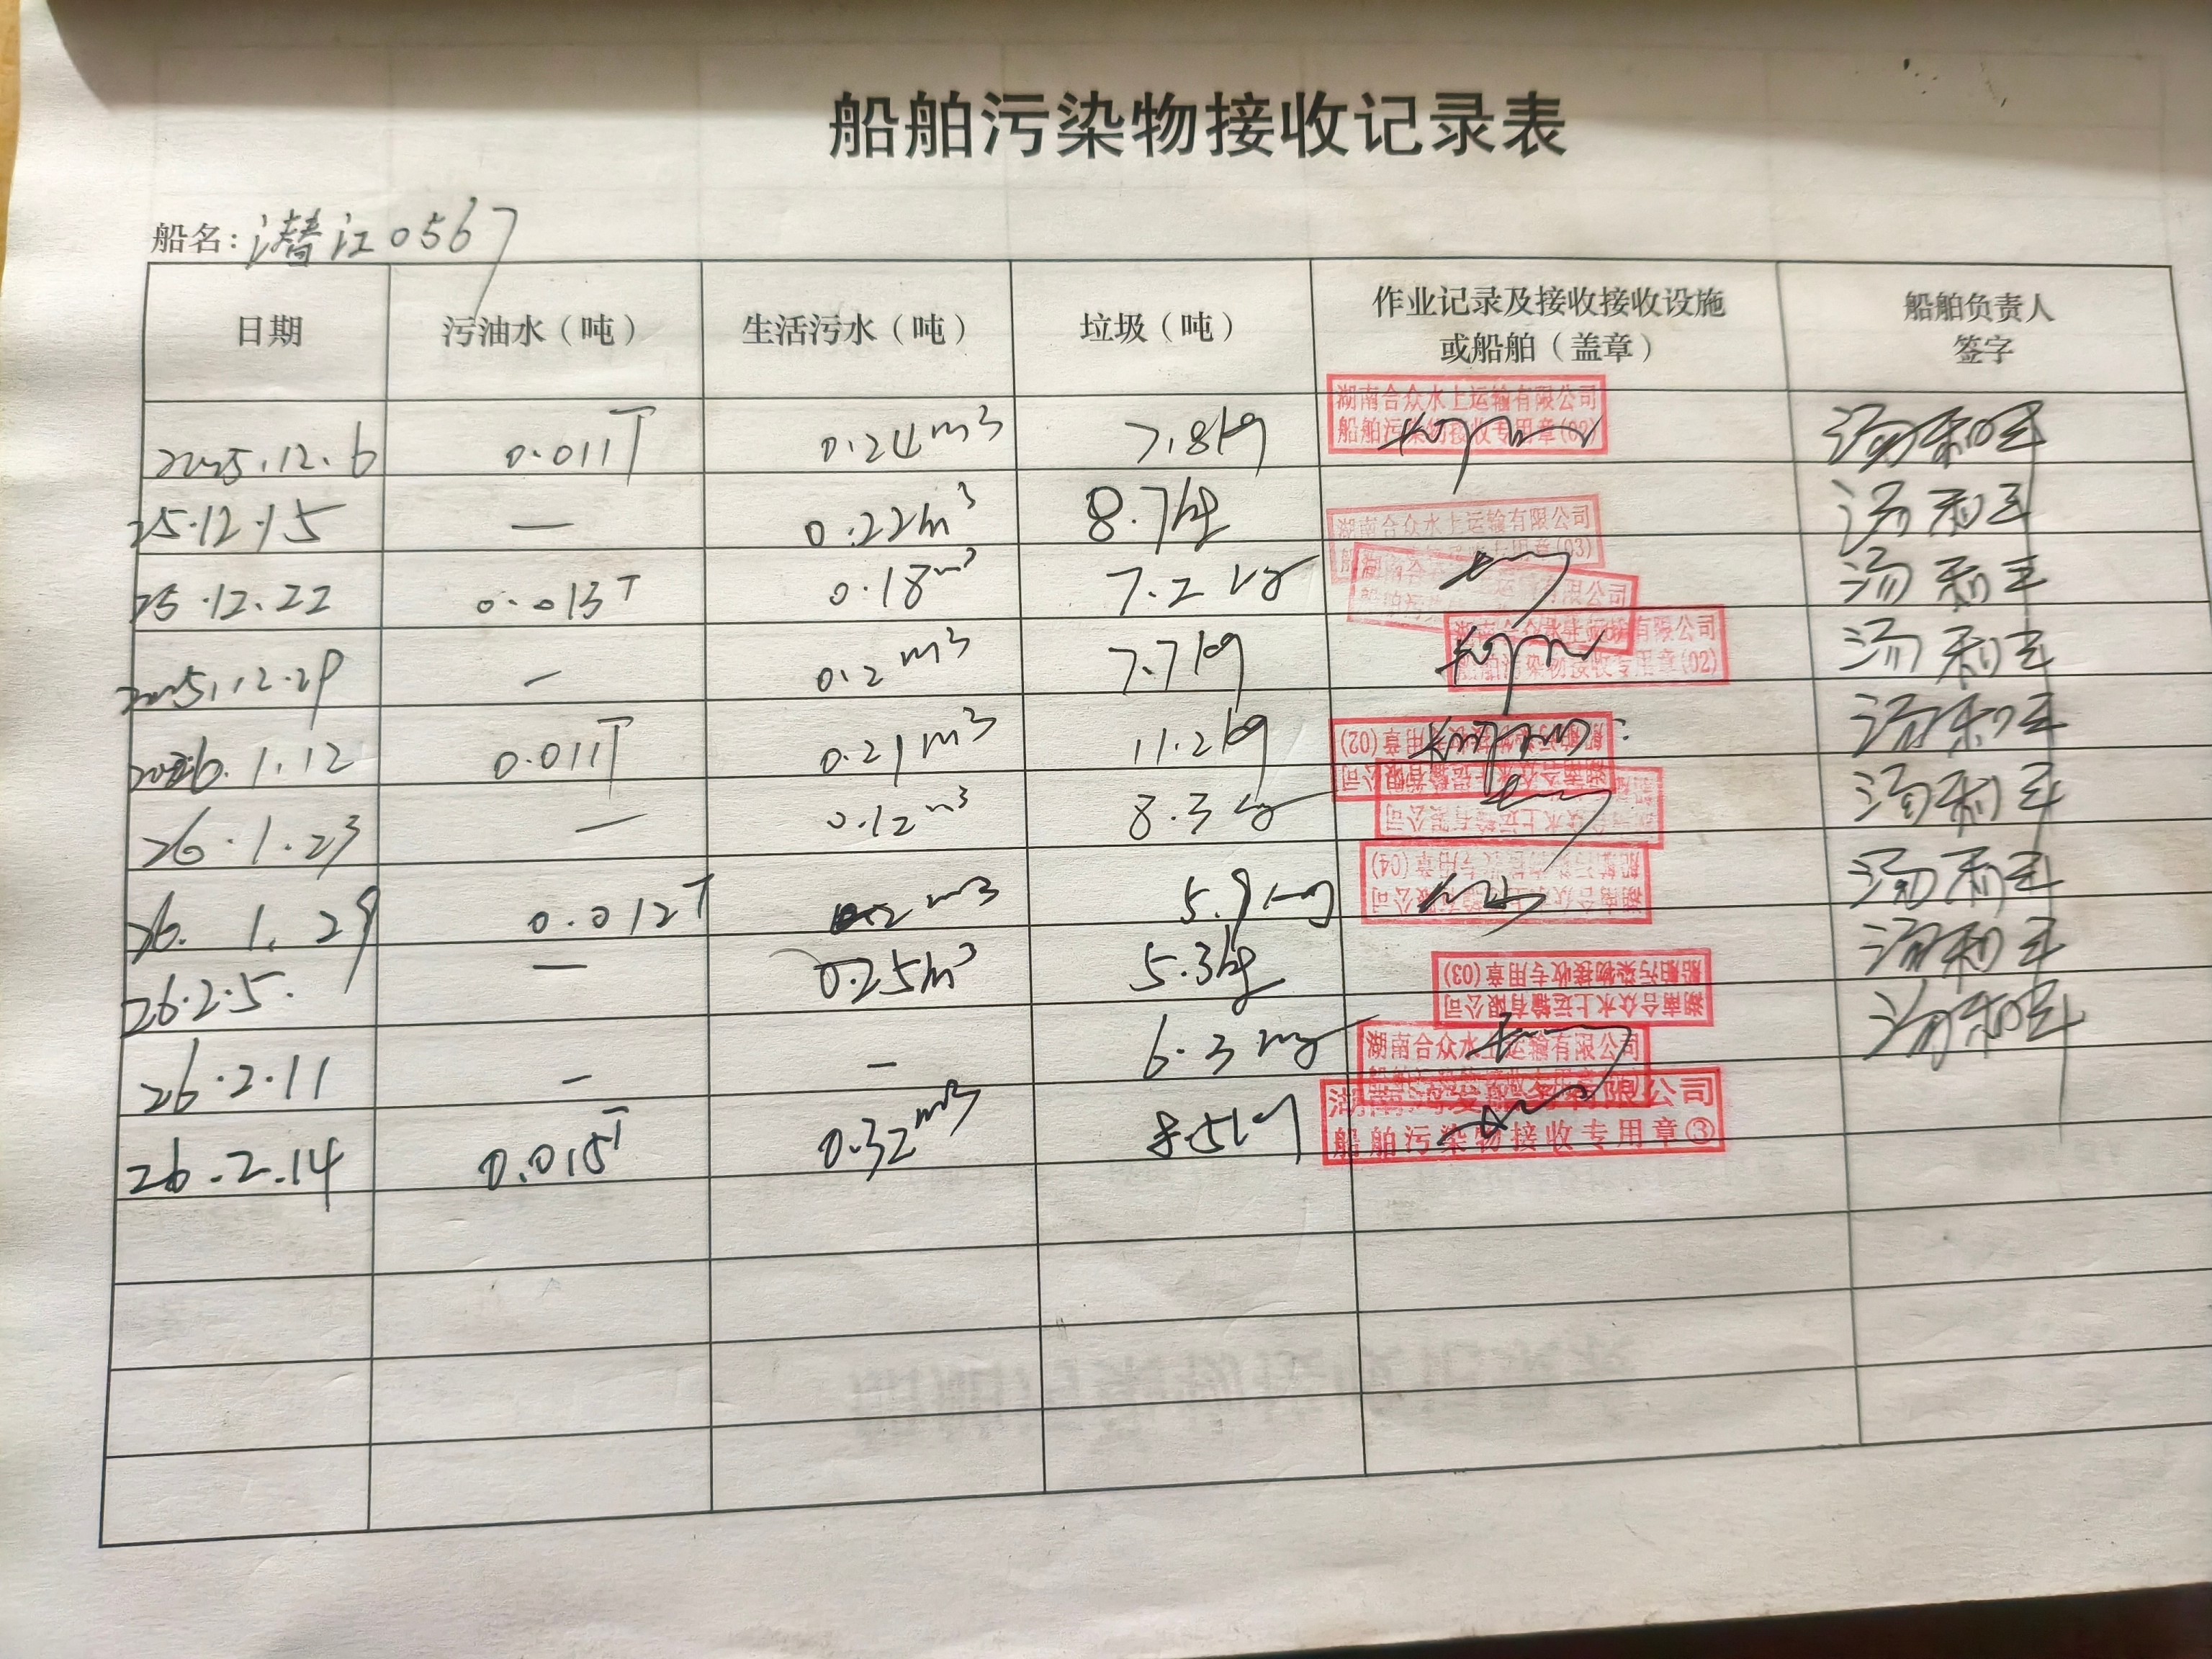 船舶污染物接收记录表
船名：潜江0567
日期 污油水（吨） 生活污水（吨） 垃圾（吨） 作业记录及接收接收设施或船舶（盖章） 船舶负责人签字
2025.12.6 0.011T 0.24m3 7.8kg 湖南合众水上运输有限公司 船舶污染物接收专用章(02)
25.12.15 — 0.22m3 8.7kg 湖南合众水上运输有限公司 专用章(03)
25.12.22 0.013T 0.18m3 7.2kg 有限公司
2025.12.29 — 0.2m3 7.7kg 湖南合众水上运输有限公司 船舶污染物接收专用章(02)
2026.1.12 0.011T 0.21m3 11.2kg 船舶污染物接收专用章(02) 湖南合众水上运输有限公司
26.1.23 — 0.12m3 8.3kg 湖南合众水上运输有限公司
26.1.29 0.012T 0.2m3 5.9kg 船舶污染物接收专用章(04) 湖南合众水上运输有限公司
26.2.5. — 0.25m3 5.3kg 船舶污染物接收专用章(03) 湖南合众水上运输有限公司
26.2.11 — — 6.3kg 湖南合众水上运输有限公司
26.2.14 0.015T 0.32m3 8.5kg 有限公司 船舶污染物接收专用章③